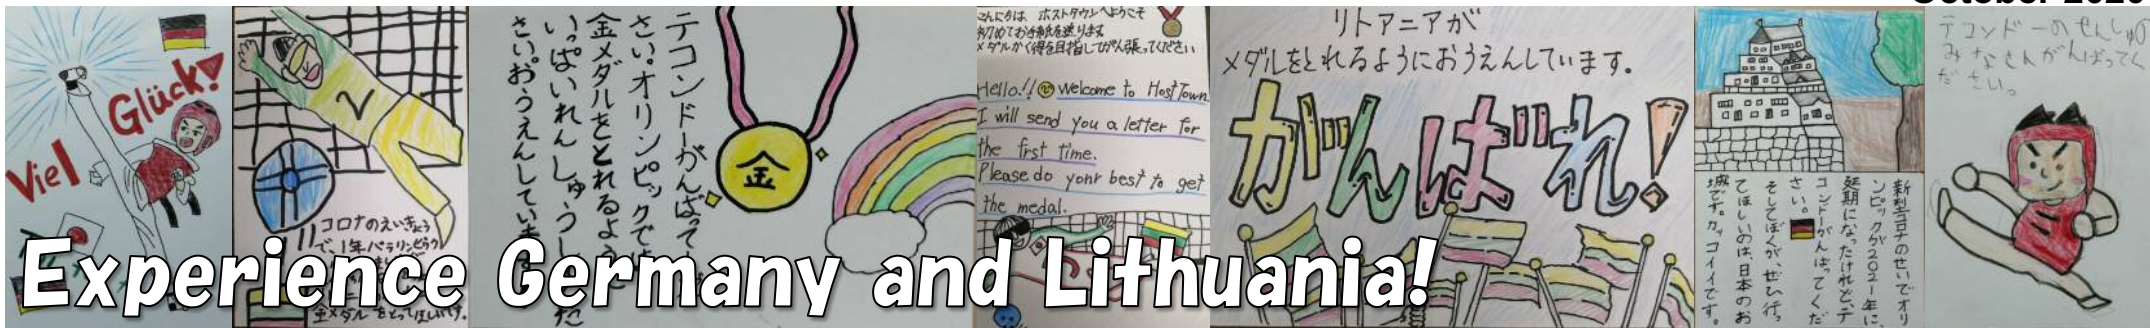 October 2020
Viel
Glück!
コロナのえいきょう
で、1年パラリンピック
金メダルをとってほしいです。
テコンドーがんばって
さい。オリンピックで
金メダルをとれるよう
いっぱいれんしゅうし
さい。おうえんしていま
金
こんにちは ホストタウンへようこそ
初めてお手紙を送ります
メダルかく得を目指してがん張ってください
Hello!! Welcome to Host Town.
I will send you a letter for
the frst time.
Please do your best to get
the medal.
リトアニアが
メダルをとれるようにおうえんしています。
がんばれ!
新型コロナのせいでオリ
ンピックが2021年に、
延期になったけれど、テ
コンドーがんばってくだ
さい。
そしてぼくが、ぜひ行っ
てほしいのは、日本のお
城です。カッコイイです。
テコンドーのせんしゅの
みなさんがんばってく
ださい。
Experience Germany and Lithuania!